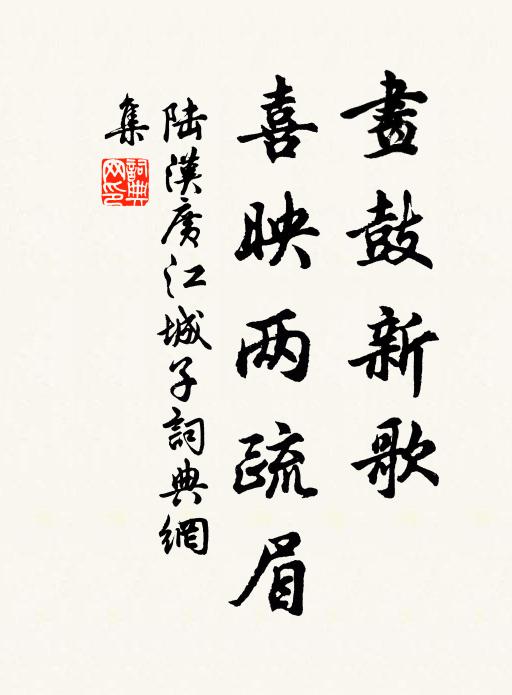 畫鼓新歌
喜映两疏眉
陆漢廣江城子詞典網
集
詞典
网印